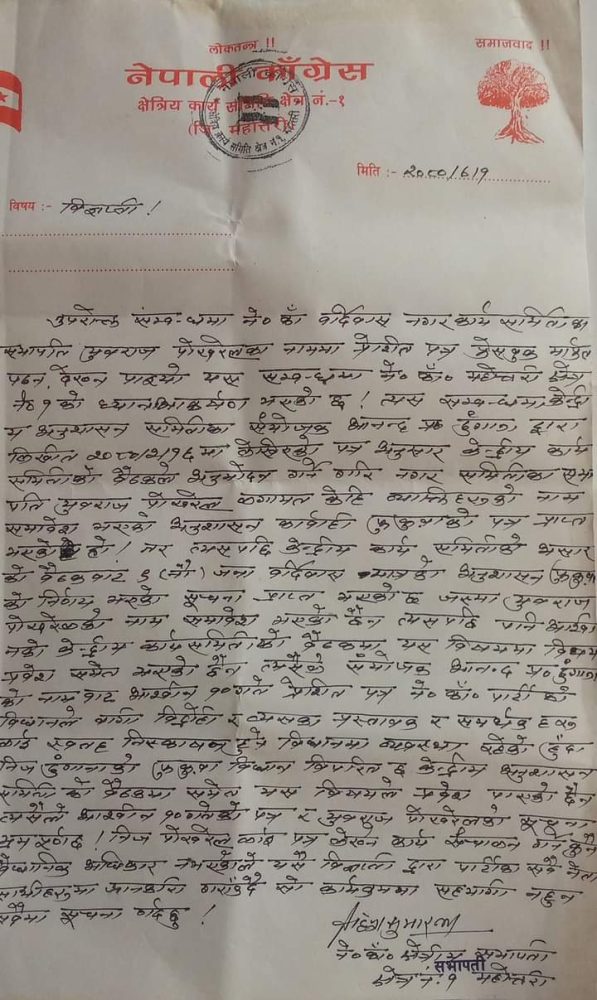 लोकतन्त्र !! समाजवाद !!
नेपाली काँग्रेस
क्षेत्रिय कार्य समिति क्षेत्र नं.-१
(जि. महोत्तरी)
मिति :- २०८०/6/19
विषय :- विज्ञप्ती !
उपरोक्त सम्बन्धमा ने० काँ बर्दिवास नगर कार्य समितिका
सभापति युवराज पोखरेलका नाममा प्रेशीत पत्र फेसबुक मार्फत
पढ्न, देख्न पाइयो यस सम्बन्धमा ने० काँ० महोत्तरी क्षेत्र
नं० १ को ध्यानआकर्षण भएको छ ! त्यस सम्बन्धमा केन्द्री
य अनुशासन समितिका संयोजक आनन्द प्र० ढुंगाना द्वारा
लिखीत २०८०/2/१६ मा लेखिएको पत्र अनुसार केन्द्रीय कार्य
समितिको बैठकले अनुमोदन गर्ने गरि नगर समितिका सभा
पति युवराज पोखरेल लगायत केहि व्यक्तिहरुको नाम
समावेश भएको अनुशासन कार्वाही फुकुवाको पत्र प्राप्त
भएको हो ! तर त्यसपछि केन्द्रीय कार्य समितिको असार
को बैठकबाट ९ (नौ) जना बर्दिवास मात्रको अनुशासन फुकुवा
को निर्णय भएको सूचना प्राप्त भएको छ जसमा युवराज
पोखरेलको नाम समावेश भएको छैन त्यसपछि पनि
केन्द्रीय कार्यसमितिको बैठकमा यस विषयमा विषय
प्रवेश समेत भएको छैन त्यसैले संयोजक आनन्द प्र० ढुंगाना
को नामबाट आश्वीन १० गते प्रेशीत पत्र ने० काँ० पार्टी को
विधानले बागी विद्रोही र त्यसका प्रस्तावक र समर्थक हरु
लाई स्वतह निस्काषन हुने विधानमा व्यवस्था रहेको हुँदा
निज ढुंगानाको फुकुवा विधान विपरित छ केन्द्रीय अनुशासन
समिति को बैठकमा समेत यस विषयले प्रवेश पाएको छैन
त्यसैले आश्वीन १० गतेको पत्र र युवराज पोखरेलको सूचना
भ्रमपूर्णछ ! निज पोखरेललाई पत्र लेख्न कार्य संचालन गर्न कुनै
वैधानिक अधिकार नभएकोले यसै विज्ञप्ती द्वारा पार्टीका सबै नेता
साथीहरुमा जानकारी गराउँदै सो कार्यक्रममा सहभागी नहुन
सबैमा सूचना गर्दछु !
ने० काँ० क्षेत्रीय सभापती
सभापती
क्षेत्र नं. १ महोत्तरी